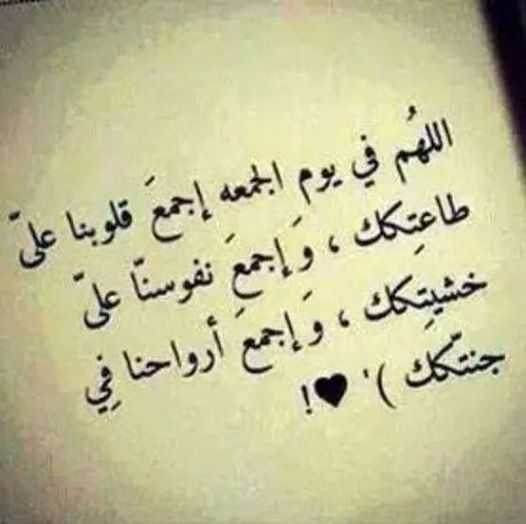 اللهُم في يوم الجمعه إجمعَ قلوبنا علىّ
طاعتِكك ، وَإجمعَ نفوسنّا علىّ
خشيتِكك ، وَإجمعَ أرواحنا فِي
جنتّكك )' ♥!